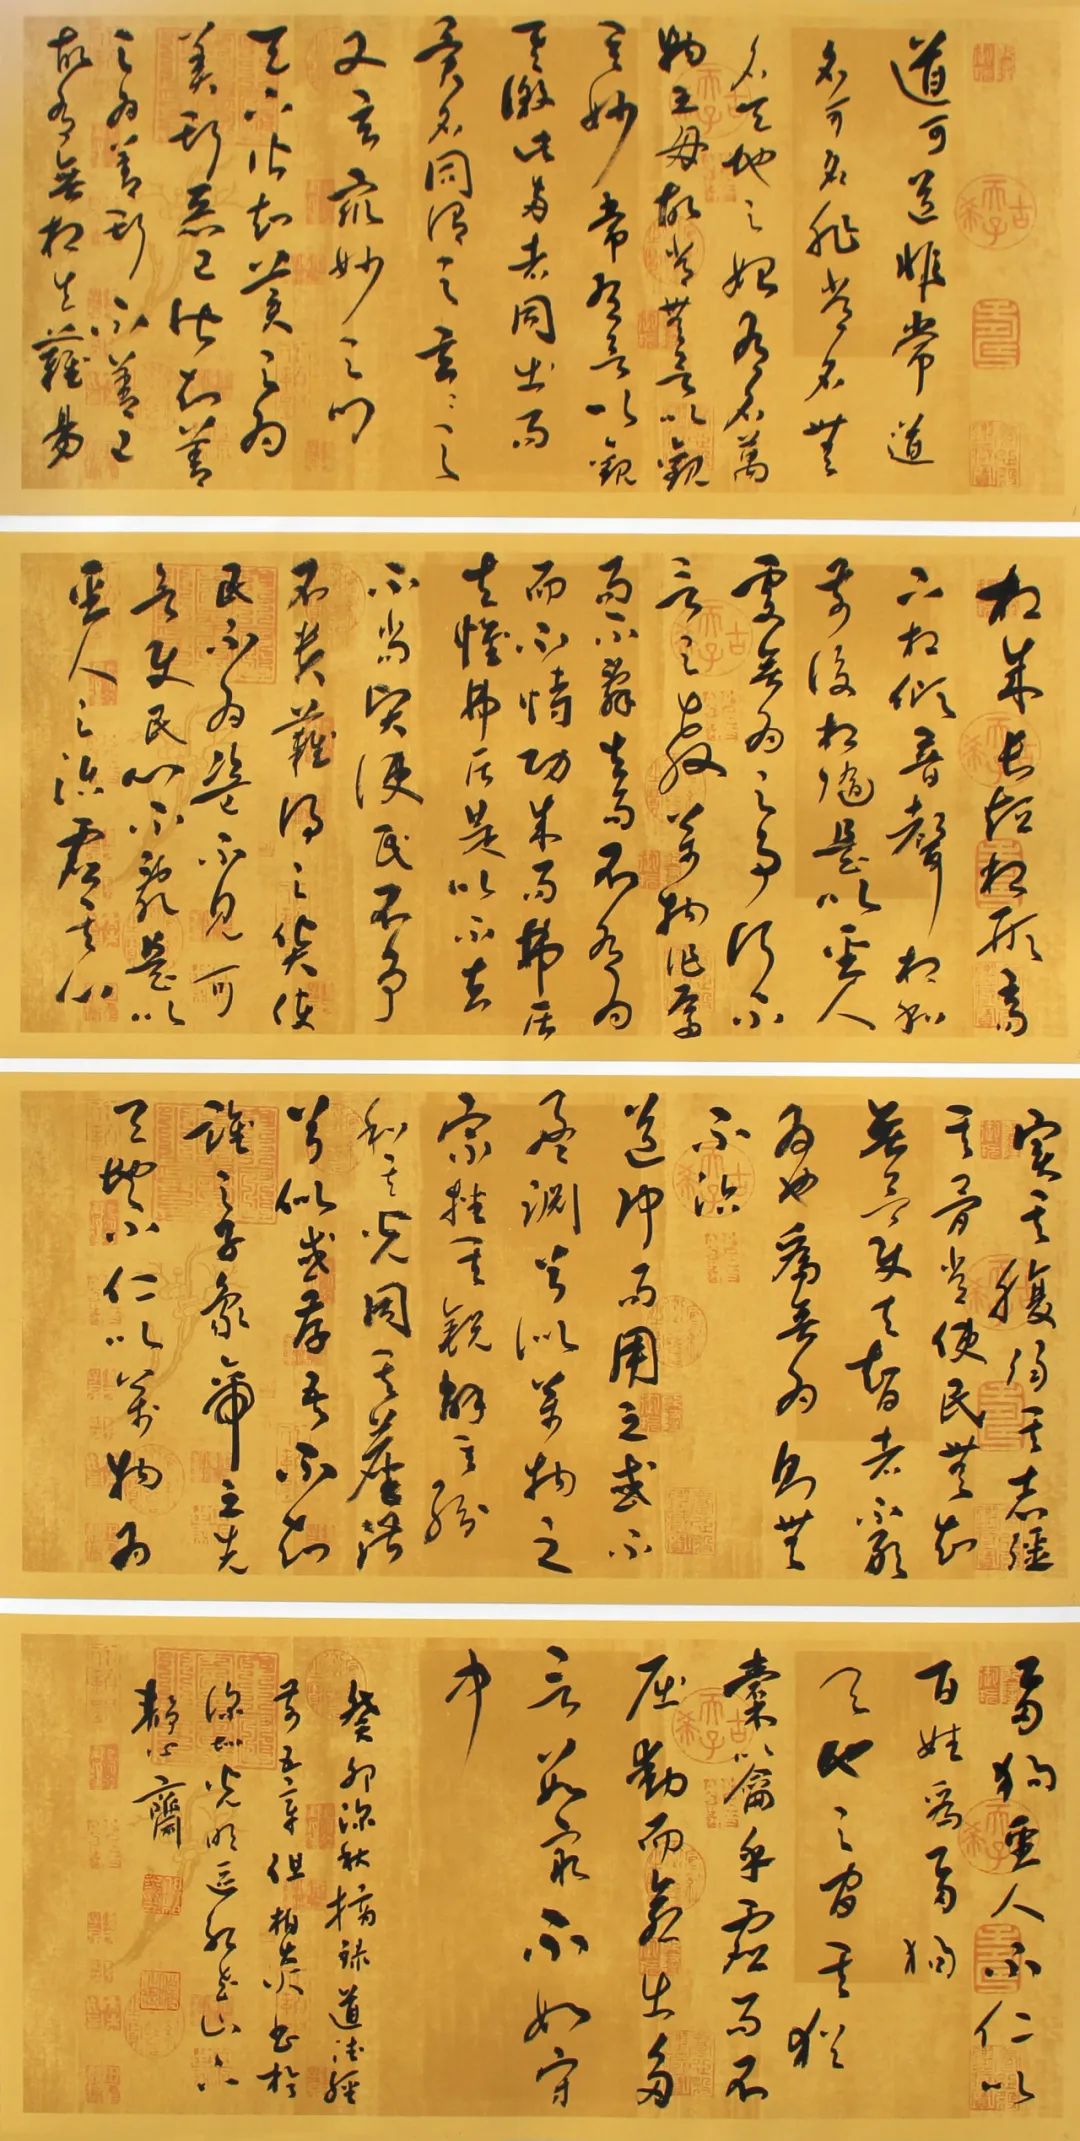 道可道非常道
名可名非常名無
名天地之始有名萬
物之母故常無欲以觀
其妙常有欲以觀
其徼此兩者同出而
異名同謂之玄玄之
又玄眾妙之門
天下皆知美之為
美斯惡已皆知善
之為善斯不善已
故有無相生難易
相成長短相形高
下相傾音聲相和
前後相隨是以聖人
處無為之事行不
言之教萬物作焉
而不辭生而不有為
而不恃功成而弗居
夫惟弗居是以不去
不尚賢使民不爭
不貴難得之貨使
民不為盜不見可
欲使民心不亂是以
聖人之治虛其心
實其腹弱其志強
其骨常使民無知
無欲使夫智者不敢
為也為無為則無
不治
道沖而用之或不
盈淵兮似萬物之
宗挫其銳解其紛
和其光同其塵湛
兮似或存吾不知
誰之子象帝之先
天地不仁以萬物為
芻狗聖人不仁以
百姓為芻狗
天地之間其猶
橐籥乎虛而不
屈動而愈出多
言數窮不如守
中
癸卯深秋摘錄道德經
前五章 但柏炎書於
深圳光明區
靜心齋